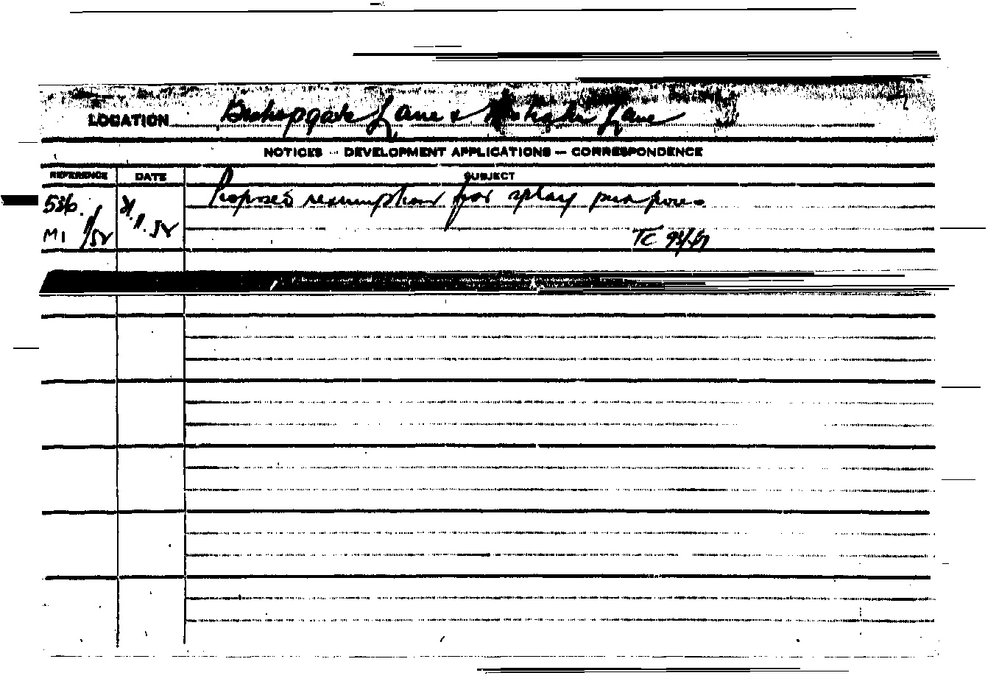 LOCATION Bishopgate Lane & Lane
NOTICES - DEVELOPMENT APPLICATIONS — CORRESPONDENCE
REFERENCE DATE SUBJECT
536. Proposed resumption for splay purposes
M1 1/52 .1.52 TC